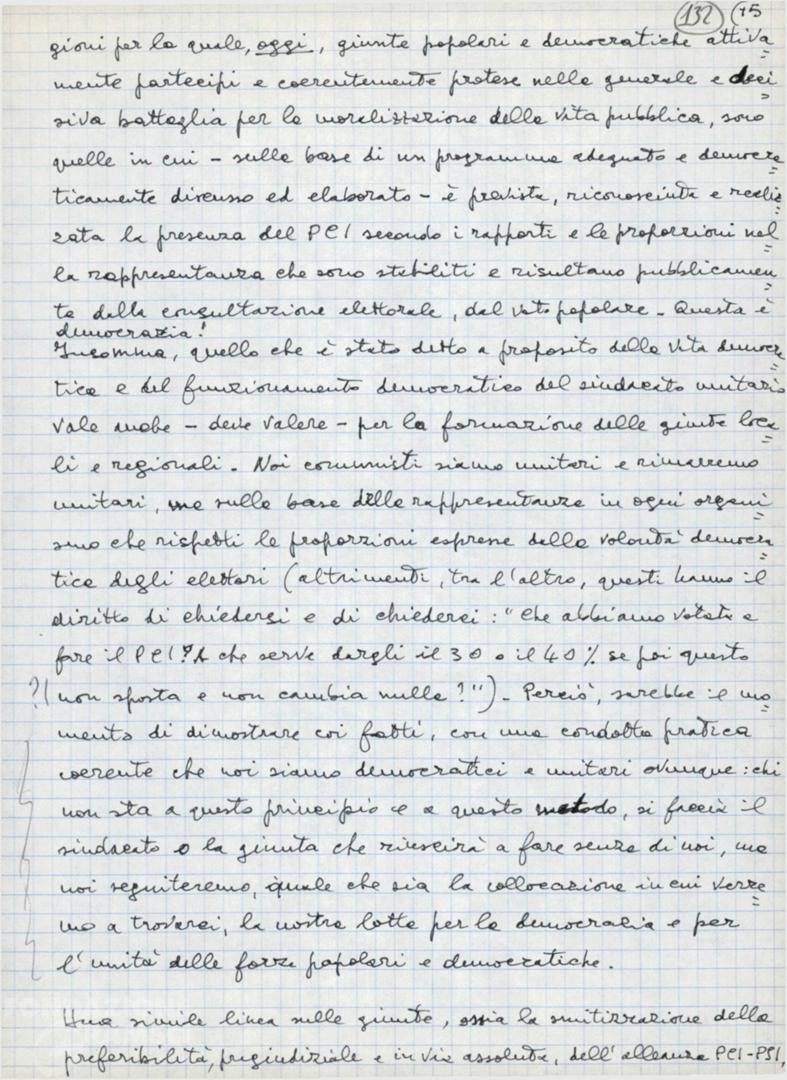 132 (75
gioni per la quale, oggi, giunte popolari e democratiche attiva=
mente partecipi e coerentemente protese nella generale e deci=
siva battaglia per la moralizzazione della vita pubblica, sono
quelle in cui - sulla base di un programma adeguato e democra=
ticamente discusso ed elaborato - è prevista, riconosciuta e realiz=
zata la presenza del PCI secondo i rapporti e le proporzioni nel=
la rappresentanza che sono stabiliti e risultano pubblicamen=
te dalla consultazione elettorale, dal voto popolare. Questa è
democrazia!
Insomma, quello che è stato detto a proposito della vita democra=
tica e del funzionamento democratico del sindacato unitario
vale anche - deve valere - per la formazione delle giunte loca=
li e regionali. Noi comunisti siamo unitari e rimarremo
unitari, ma sulla base della rappresentanza in ogni organi=
smo che rispetti le proporzioni espresse dalla volontà democra=
tica degli elettori (altrimenti, tra l'altro, questi hanno il
diritto di chiedersi e di chiederci: "Che abbiamo votato a
fare il PCI? A che serve dargli il 30 o il 40% se poi questo
?( non sposta e non cambia nulla?"). Perciò, sarebbe il mo=
mento di dimostrare coi fatti, con una condotta pratica
coerente che noi siamo democratici e unitari ovunque: chi
non sta a questo principio e a questo metodo, si faccia il
sindacato o la giunta che riuscirà a fare senza di noi, ma
noi seguiteremo, quale che sia la collocazione in cui verre=
mo a trovarci, la nostra lotta per la democrazia e per
l'unità delle forze popolari e democratiche.
Una simile linea sulle giunte, ossia la smitizzazione della
preferibilità, pregiudiziale e in via assoluta, dell'alleanza PCI-PSI,